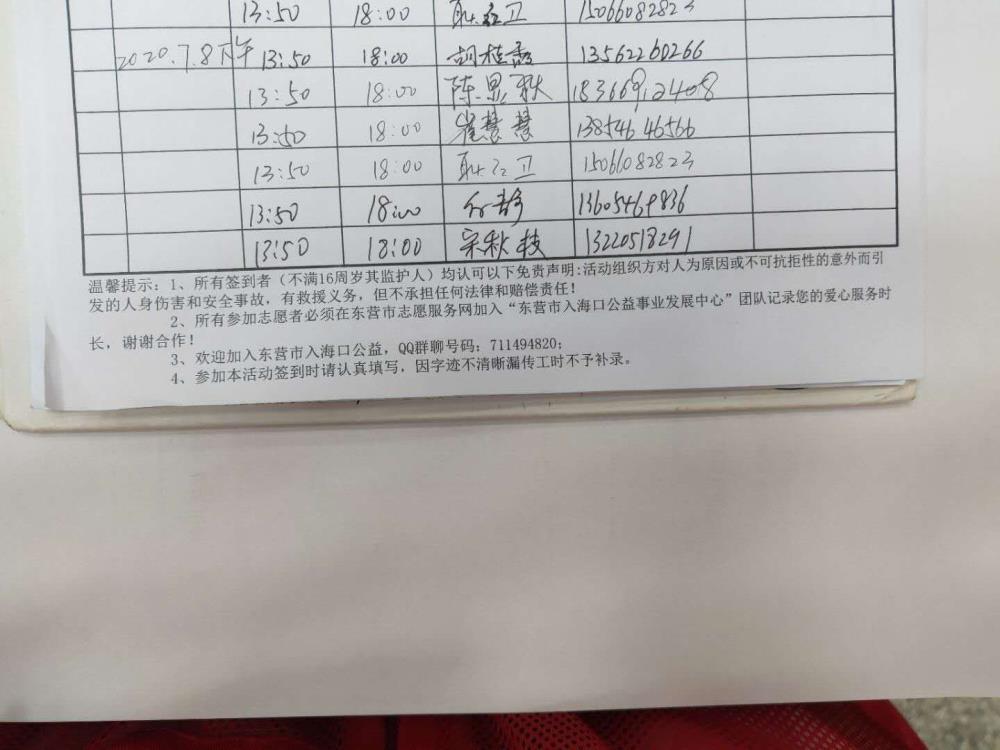 13:50 18:00 耿红卫 15066082823
2020.7.8下午 13:50 18:00 胡桂香 13562260266
13:50 18:00 陈显秋 18366912408
13:50 18:00 崔慧慧 13854646566
13:50 18:00 耿红卫 15066082823
13:50 18:00 静 13605469836
13:50 18:00 宋秋枝 13220518291
温馨提示：1、所有签到者（不满16周岁其监护人）均认可以下免责声明:活动组织方对人为原因或不可抗拒性的意外而引
发的人身伤害和安全事故，有救援义务，但不承担任何法律和赔偿责任！
2、所有参加志愿者必须在东营市志愿服务网加入“东营市入海口公益事业发展中心”团队记录您的爱心服务时
长，谢谢合作！
3、欢迎加入东营市入海口公益，QQ群聊号码：711494820；
4、参加本活动签到时请认真填写，因字迹不清晰漏传工时不予补录。